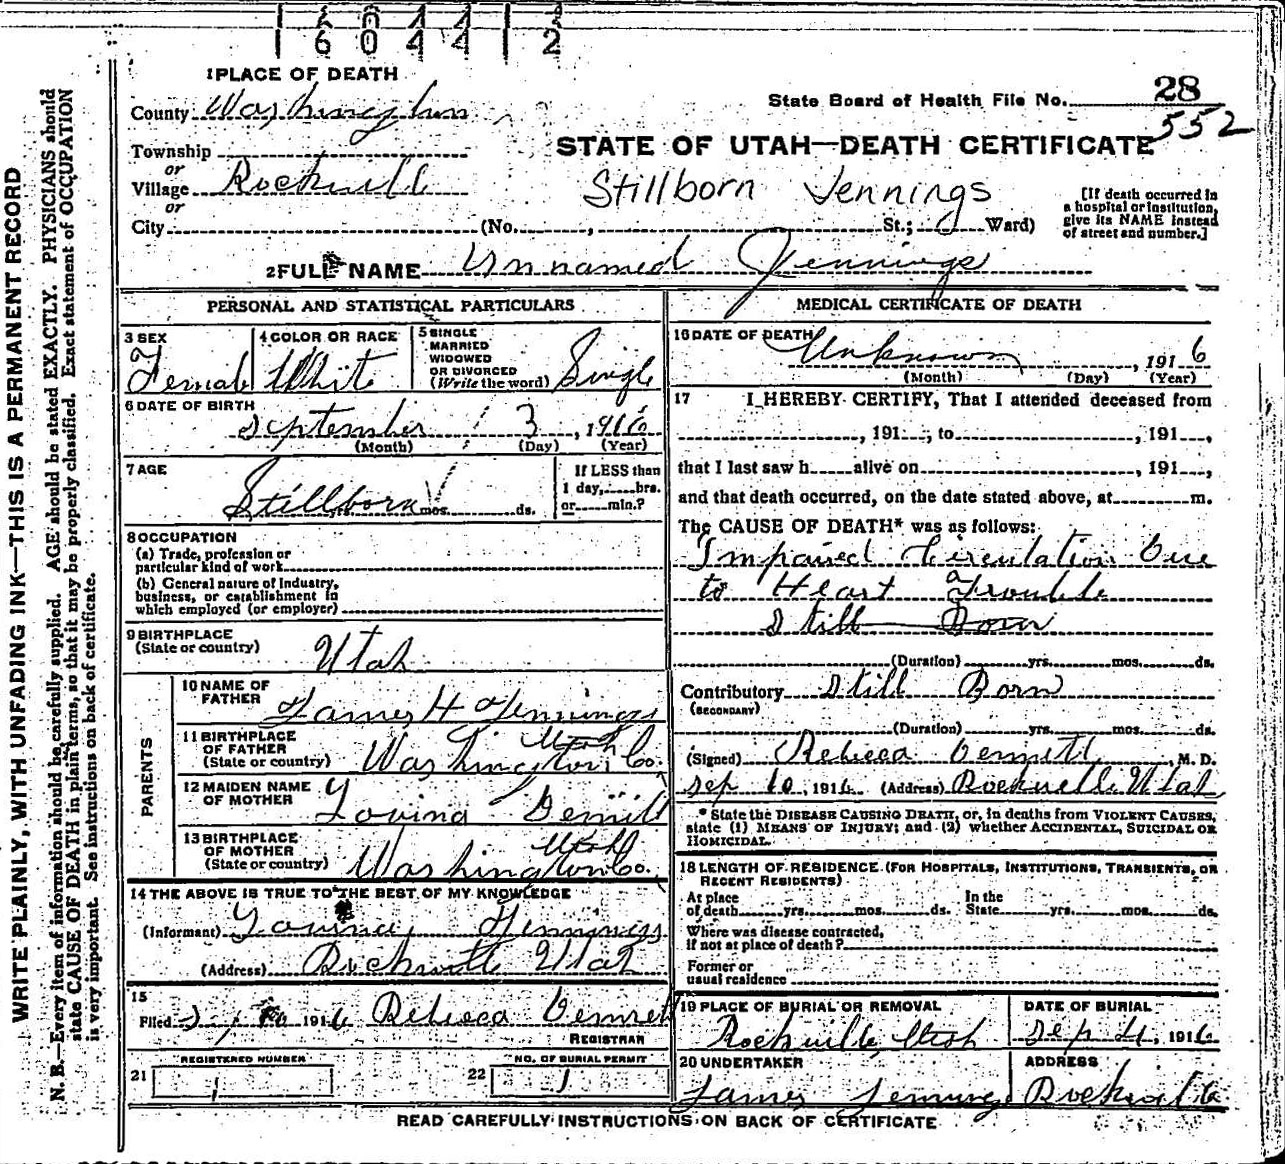 1 6 0 4 4 1 2
1 PLACE OF DEATH
County Washington
State Board of Health File No. 28
552
Township
or
Village Rockvill
or
City (No. , St.; Ward)
STATE OF UTAH—DEATH CERTIFICATE
Stillborn Jennings
[If death occurred in
a hospital or institution,
give its NAME instead
of street and number.]
2 FULL NAME Unnamed Jennings
PERSONAL AND STATISTICAL PARTICULARS
3 SEX
Female
4 COLOR OR RACE
White
5 SINGLE
MARRIED
WIDOWED
OR DIVORCED
(Write the word) Single
6 DATE OF BIRTH
September 3, 1916
(Month) (Day) (Year)
7 AGE
Stillborn yrs. mos. ds.
If LESS than
1 day, hrs.
or min.?
8 OCCUPATION
(a) Trade, profession or
particular kind of work
(b) General nature of industry,
business, or establishment in
which employed (or employer)
9 BIRTHPLACE
(State or country) Utah
PARENTS
10 NAME OF
FATHER James H Jennings
11 BIRTHPLACE
OF FATHER
(State or country) Washington Co. Utah
12 MAIDEN NAME
OF MOTHER Lovina
13 BIRTHPLACE
OF MOTHER
(State or country) Washington Co. Utah
14 THE ABOVE IS TRUE TO THE BEST OF MY KNOWLEDGE
(Informant) Lovina Jennings
(Address) Rockville Utah
15
Filed 1916 Rebecca
REGISTRAR
REGISTERED NUMBER
21 1
NO. OF BURIAL PERMIT
22 1
MEDICAL CERTIFICATE OF DEATH
16 DATE OF DEATH
Unknown, 1916
(Month) (Day) (Year)
17 I HEREBY CERTIFY, That I attended deceased from
, 191 , to , 191 ,
that I last saw h alive on , 191 ,
and that death occurred, on the date stated above, at m.
The CAUSE OF DEATH* was as follows:
Impaired Circulation Due
to Heart Trouble
Still Born
(Duration) yrs. mos. ds.
Contributory Still Born
(SECONDARY)
(Duration) yrs. mos. ds.
(Signed) Rebecca , M. D.
Sep 10, 1916 (Address) Rockville Utah
* State the DISEASE CAUSING DEATH, or, in deaths from VIOLENT CAUSES,
state (1) MEANS OF INJURY; and (2) whether ACCIDENTAL, SUICIDAL OR
HOMICIDAL.
18 LENGTH OF RESIDENCE (FOR HOSPITALS, INSTITUTIONS, TRANSIENTS, OR
RECENT RESIDENTS)
At place
of death yrs. mos. ds.
In the
State yrs. mos. ds.
Where was disease contracted,
if not at place of death?
Former or
usual residence
19 PLACE OF BURIAL OR REMOVAL
Rockville, Utah
DATE OF BURIAL
Sep 4, 1916
20 UNDERTAKER
James Jennings
ADDRESS
Rockville
READ CAREFULLY INSTRUCTIONS ON BACK OF CERTIFICATE
WRITE PLAINLY, WITH UNFADING INK—THIS IS A PERMANENT RECORD
N. B.—Every item of information should be carefully supplied. AGE should be stated EXACTLY. PHYSICIANS should
state CAUSE OF DEATH in plain terms, so that it may be properly classified. Exact statement of OCCUPATION
is very important. See instructions on back of certificate.